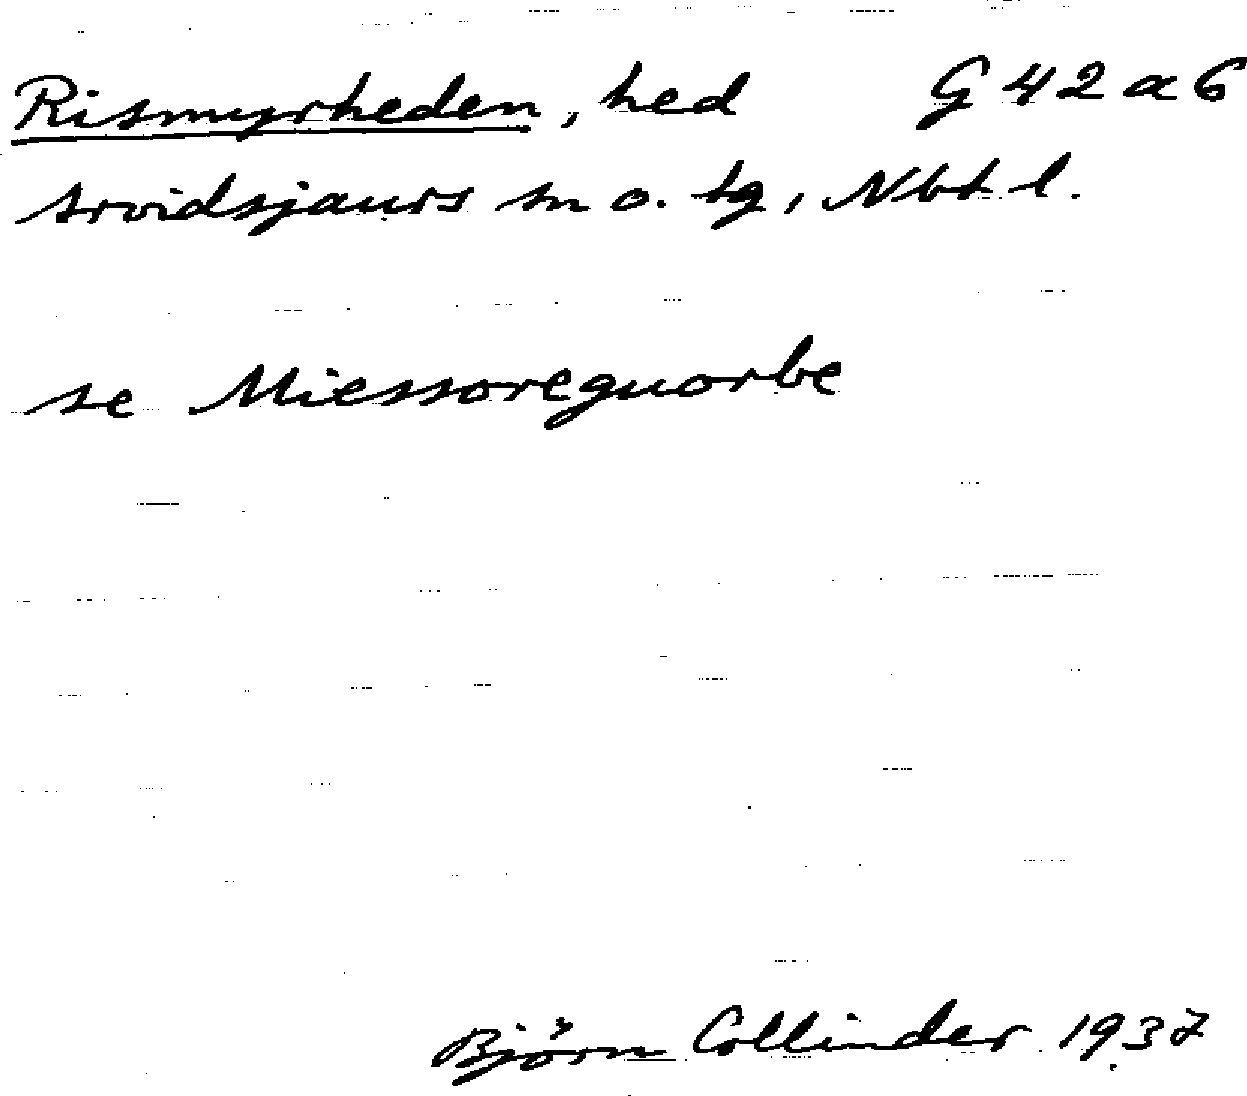 Rismyrheden, hed G 42 a 6
Arvidsjaurs sn o. tg, Nbt l.
se Miessoreguorbe
Björn Collinder 1937